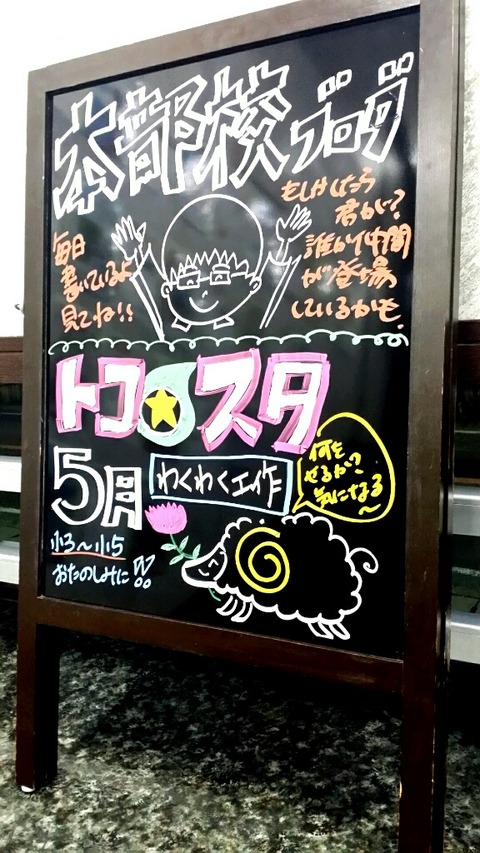 本部校ブログ
毎日
書いているよ
見てね!!
もしかしたら
君かも?
誰か仲間
が登場
しているかも.
トコ★スタ
5月
わくわく工作
何を
するか?
気になる
~
小3~小5
おたのしみに!!